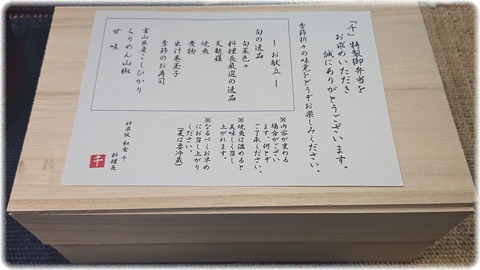 「千」特製御弁当を
お求めいただき
誠にありがとうございます。
季節折々の味覚をどうぞお楽しみください。
―お献立―
旬の逸品
旬菜色々
料理長厳選の逸品
天麩羅
焼魚
煮物
出汁巻玉子
季節のお寿司
富山県産こしひかり
ちりめん山椒
甘味
※内容が変わる
場合がござい
ます。何とぞ
ご了承ください。
※焼魚は温めると
美味しく召し
上がれます。
※なるべくお早め
にお召し上がり
ください。
(夏は要冷蔵)
神楽坂 和食 千
料理長
千